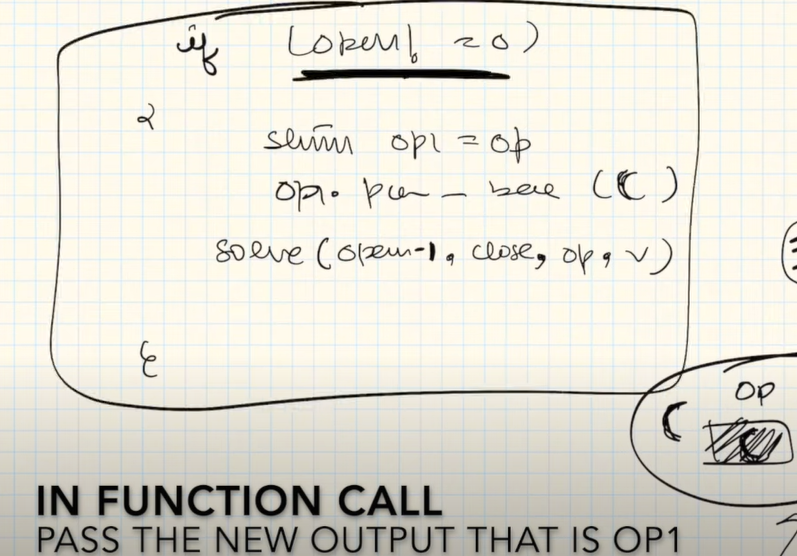 if (open! = 0)
{
string op1 = op
op1. push _ back ( ( )
solve (open-1, close, op, v)
}
op
( (
IN FUNCTION CALL
PASS THE NEW OUTPUT THAT IS OP1